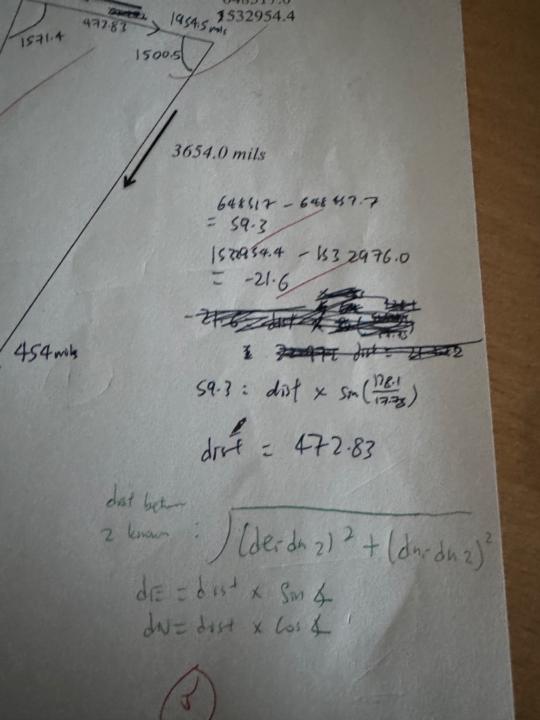 1532954.4
472.83
1954.5 mils
1571.4
1500.5
3654.0 mils
648517 - 648457.7
= 59.3
1532954.4 - 1532976.0
= -21.6
454 mils
59.3 = dist x sin(178.1/17.78)
dist = 472.83
dist betwn
2 known : √(de1-dn2)² + (dn1-dn2)²
dE = dist x Sin ∡
dN = dist x Cos ∡